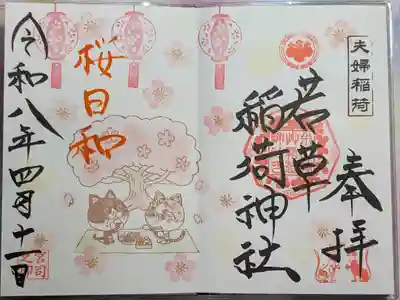 夫婦稲荷
奉拝
若草
稲荷神社
桜日和
令和八年四月十一日
宮司